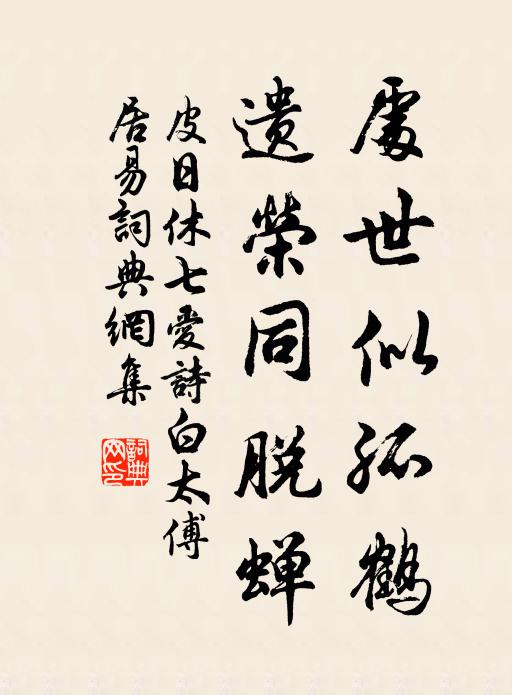 處世似孤鶴
遺榮同脱蟬
皮日休七愛詩白太傅
居易詞典網集
詞典網印